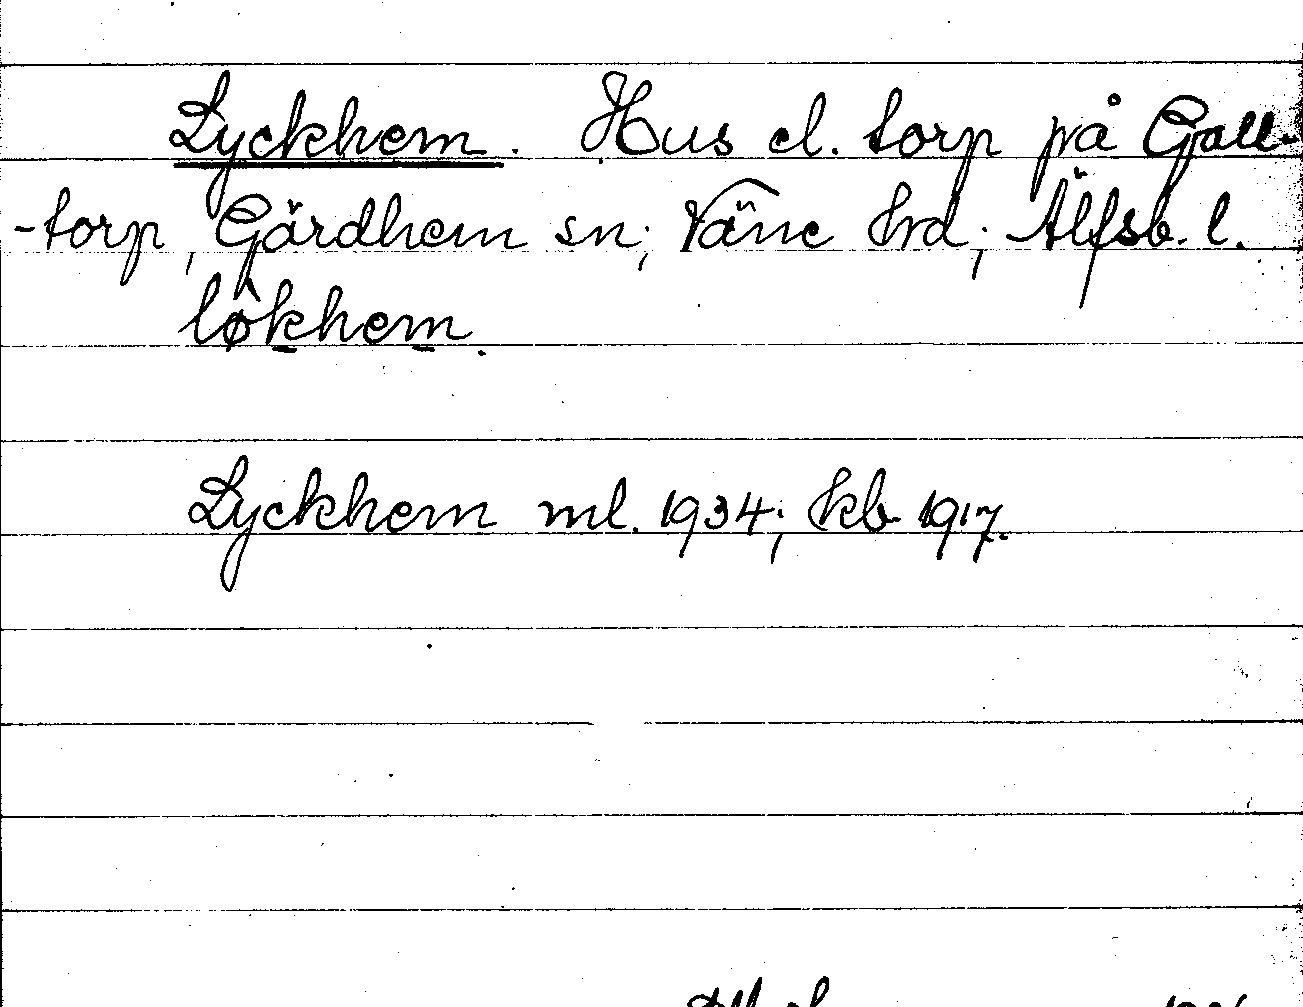 Lyckhem. Hus el. torp på Gall-
-torp, Gärdhem sn; Väne hd; Älfsb. l.
løkhem.
Lyckhem ml. 1934; kb. 1917.